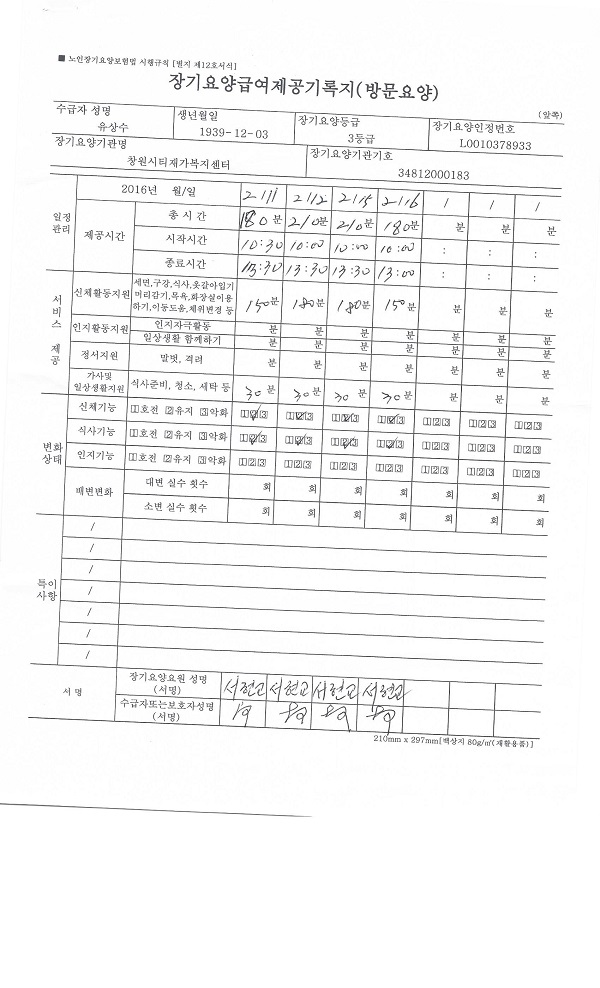 ■ 노인장기요양보험법 시행규칙 [별지 제12호서식]
장기요양급여제공기록지(방문요양)
(앞쪽)
수급자 성명 생년월일 장기요양등급 장기요양인정번호
유상수 1939-12-03 3등급 L0010378933
장기요양기관명 장기요양기관기호
창원시티재가복지센터 34812000183
일정관리
2016년 월/일 2/11 2/12 2/15 2/16 / / /
제공시간
총 시간 180분 210분 210분 180분 분 분 분
시작시간 10:30 10:00 10:00 10:00 : : :
종료시간 13:30 13:30 13:30 13:00 : : :
서비스 제공
신체활동지원 세면,구강,식사,옷갈아입기 머리감기,목욕,화장실이용 하기,이동도움,체위변경 등 150분 180분 180분 150분 분 분 분
인지활동지원 인지자극활동 분 분 분 분 분 분 분
일상생활 함께하기 분 분 분 분 분 분 분
정서지원 말벗, 격려 분 분 분 분 분 분 분
가사및 일상생활지원 식사준비, 청소, 세탁 등 30분 30분 30분 30분 분 분 분
변화상태
신체기능 1호전 2유지 3악화 1 2 3 1 2 3 1 2 3 1 2 3 1 2 3 1 2 3 1 2 3
식사기능 1호전 2유지 3악화 1 2 3 1 2 3 1 2 3 1 2 3 1 2 3 1 2 3 1 2 3
인지기능 1호전 2유지 3악화 1 2 3 1 2 3 1 2 3 1 2 3 1 2 3 1 2 3 1 2 3
배변변화 대변 실수 횟수 회 회 회 회 회 회 회
소변 실수 횟수 회 회 회 회 회 회 회
특이사항
/
/
/
/
/
/
/
서 명
장기요양요원 성명 (서명) 서현고 서현고 서현고 서현고
수급자또는보호자성명 (서명)
210mm x 297mm[백상지 80g/㎡(재활용품)]